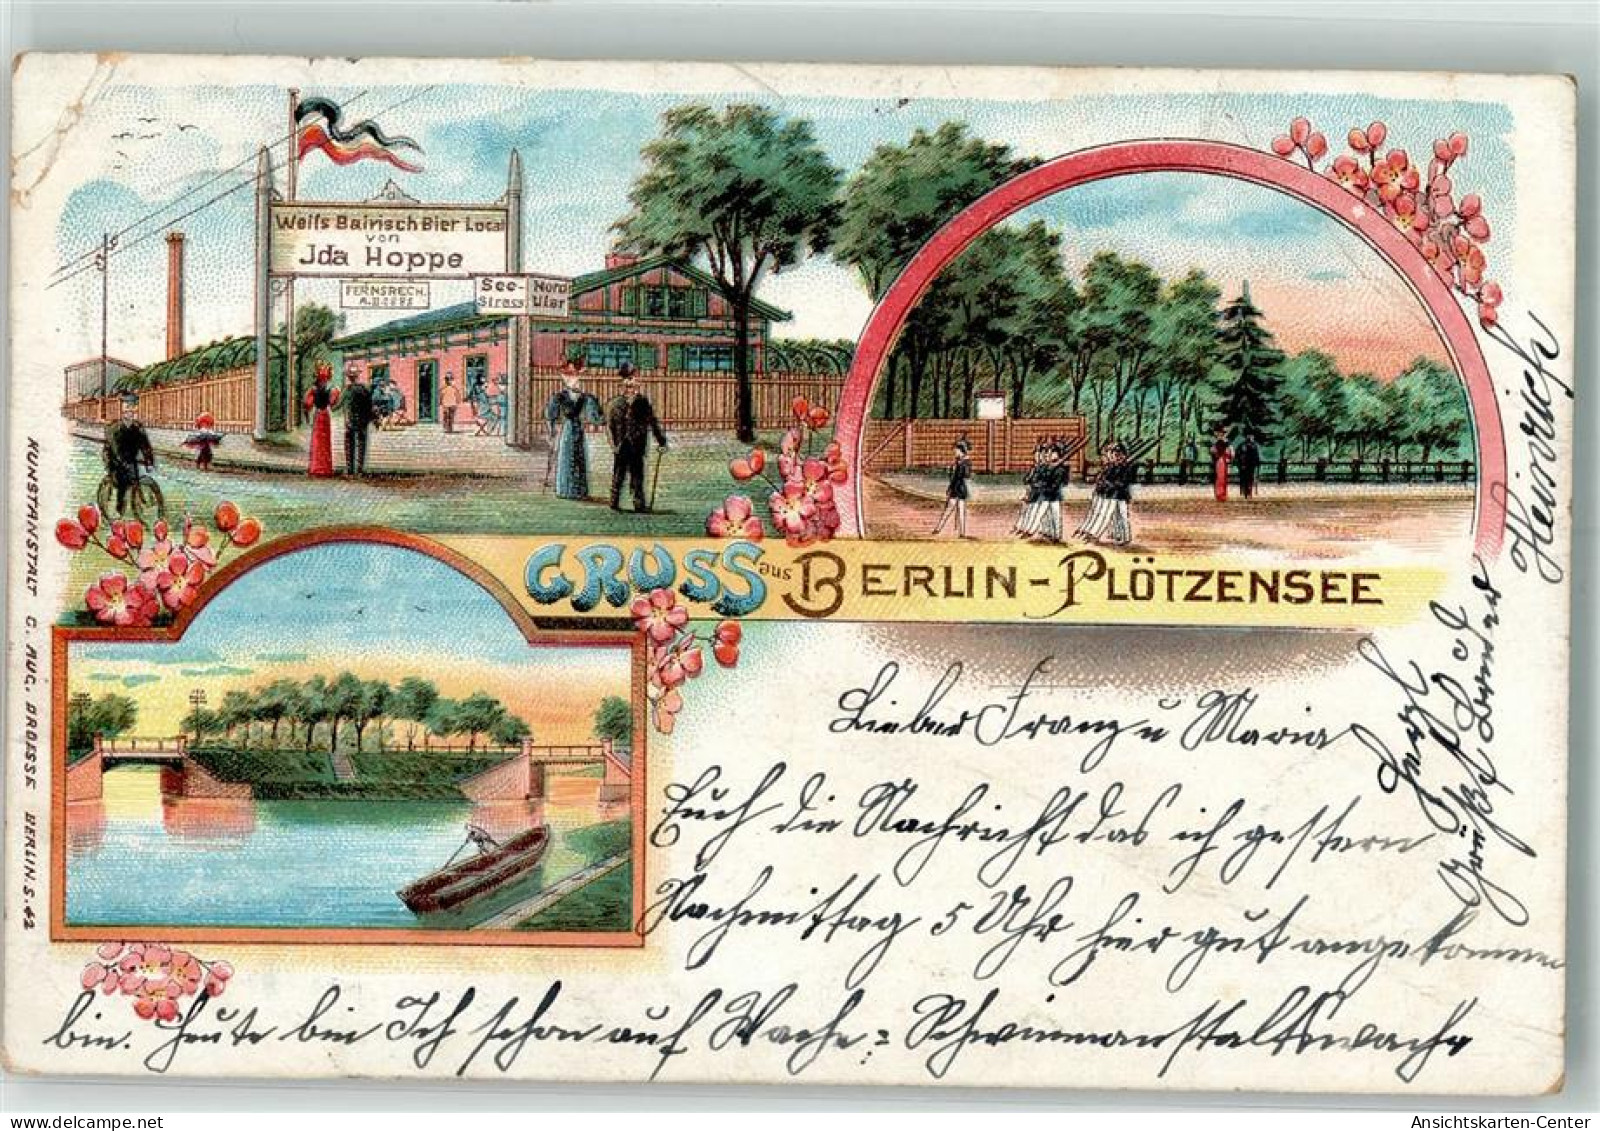 Weifs Bairisch Bier Local
von
Jda Hoppe
FERNSPRECH.
See-
Strass
Nord
Ufer
GRUSS aus BERLIN-PLÖTZENSEE
KUNSTANSTALT C. AUG. DROESSE BERLIN. S. 42
Lieber Franz u Maria
Euch die Nachricht das ich gestern
Nachmittag 5 Uhr hier gut angekommen
bin. Heute bin Ich schon auf Wache = Schwimmanstaltswache
Herzl
Grüße
Bruder
Heinrich
Ansichtskarten-Center